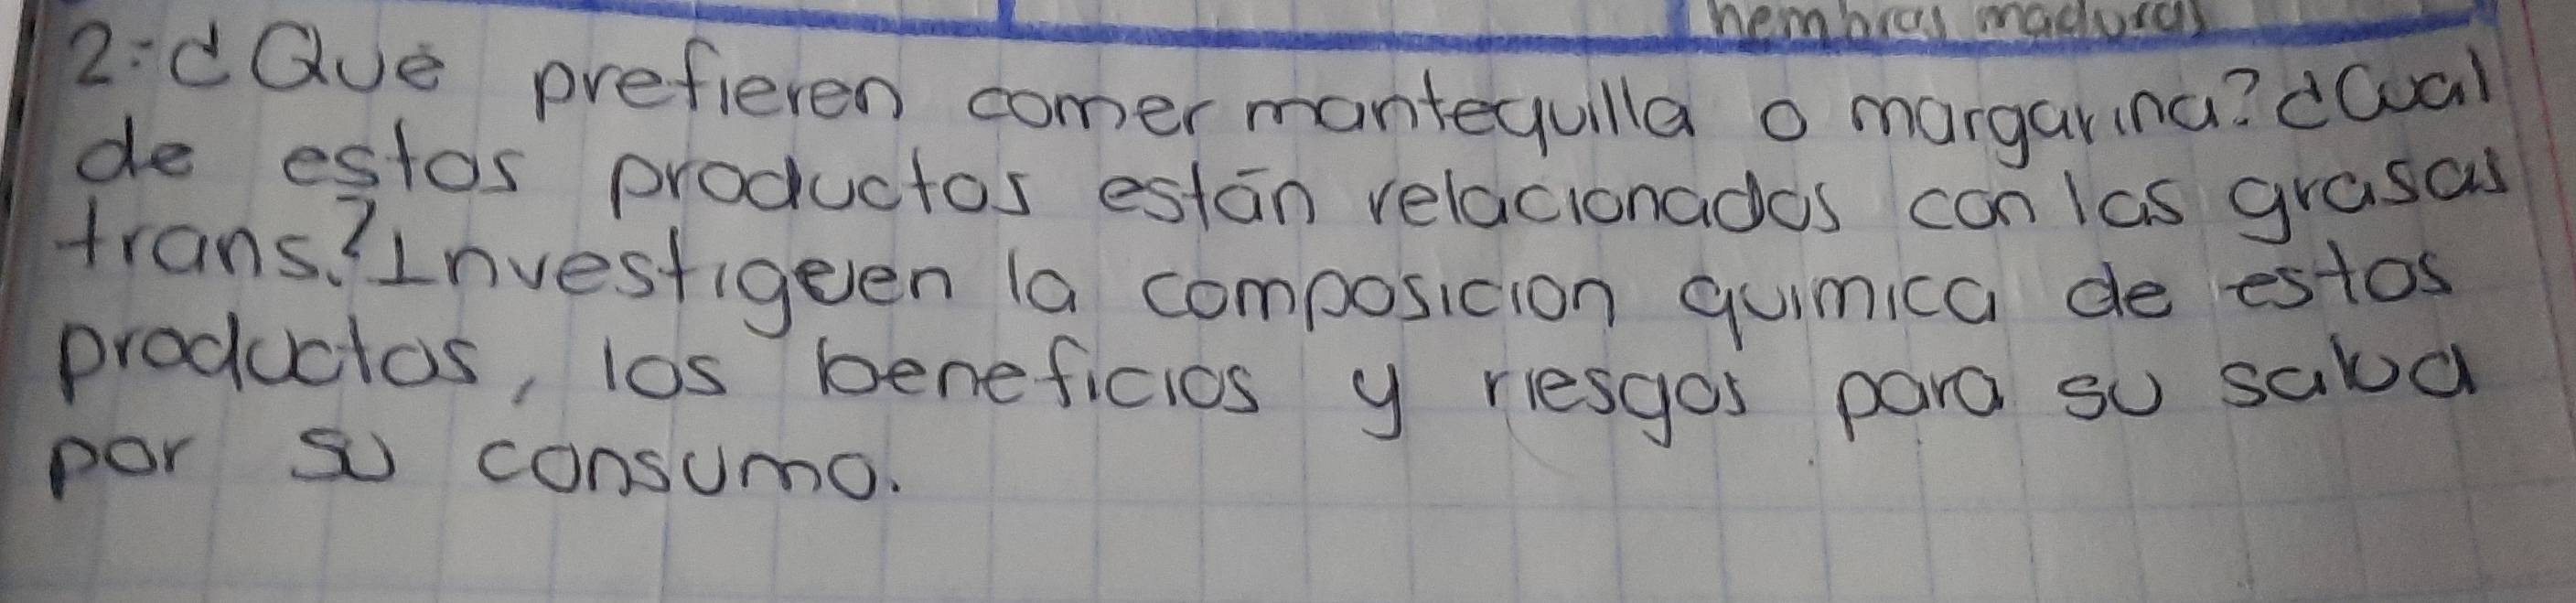 hembras maduras
2.- ¿Qué prefieren comer mantequilla o margarina? ¿Cual
de estos productos están relacionados con las grasas
trans? Investiguen la composicion quimica de estos
productos, los beneficios y riesgos para su salud
por su consumo.